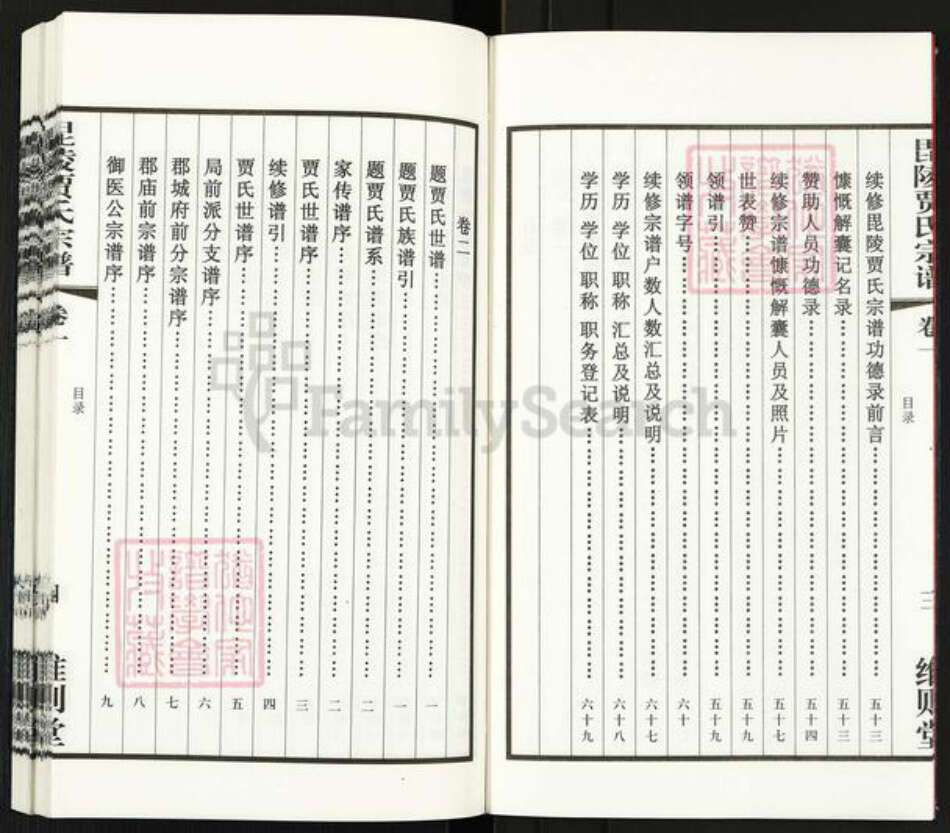 毘陵贾氏宗谱 卷一
目录
三
维则堂
续修毘陵贾氏宗谱功德录前言 五十三
慷慨解囊记名录 五十三
赞助人员功德录 五十四
续修宗谱慷慨解囊人员及照片 五十七
世表赞 五十九
领谱引 五十九
领谱字号 六十
续修宗谱户数人数汇总及说明 六十七
学历 学位 职称 汇总及说明 六十八
学历 学位 职称 职务登记表 六十九
卷二
题贾氏世谱 一
题贾氏族谱引 一
题贾氏谱系 二
家传谱序 二
贾氏世谱序 三
续修谱引 四
贾氏世谱序 五
局前派分支谱序 六
郡城府前分宗谱序 七
郡庙前宗谱序 八
御医公宗谱序 九
毘陵贾氏宗谱 卷一
目录
四
维则堂
FamilySearch